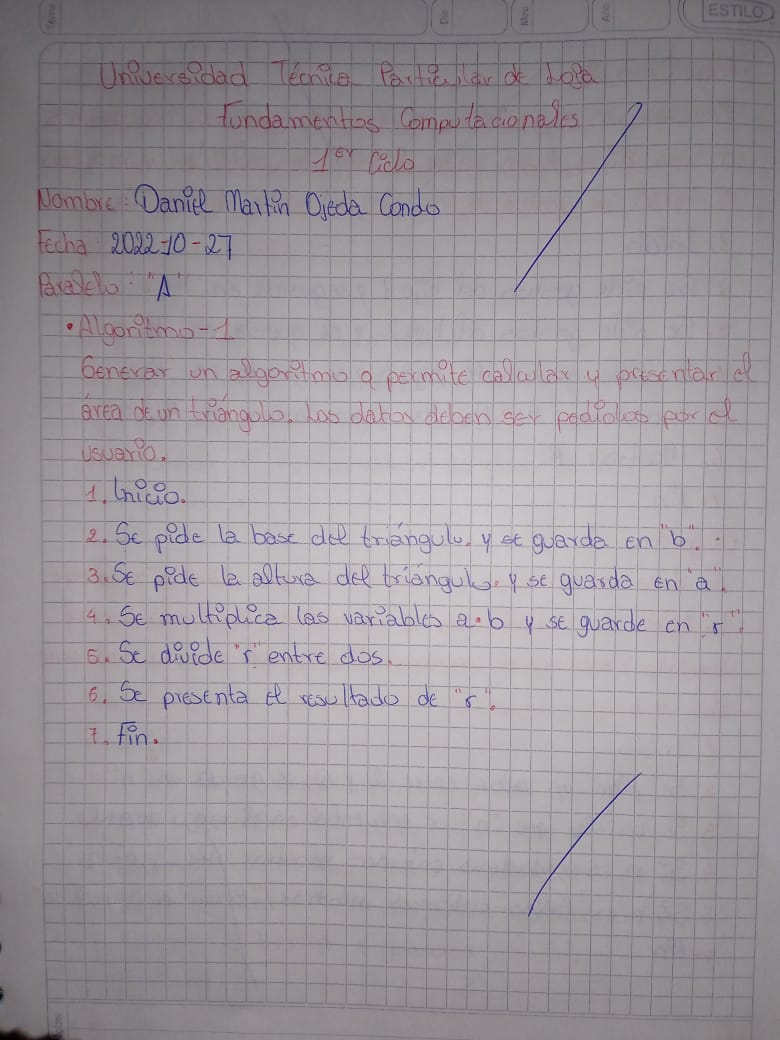 Tema:
Día
Mes
Año
ESTILO
Universidad Técnica Particular de Loja
Fundamentos Computacionales
1er Ciclo
Nombre: Daniel Martin Ojeda Condo
Fecha 2022-10-27
Paralelo: "A"
• Algoritmo-1
Generar un algoritmo q permite calcular y presentar el
área de un triángulo. Los datos deben ser pedidos por el
usuario.
1. Inicio.
2. Se pide la base del triángulo, y se guarda en "b".
3. Se pide la altura del triángulo, y se guarda en "a".
4. Se multiplica las variables a·b y se guarde en "r".
5. Se divide "r" entre dos.
6. Se presenta el resultado de "r".
7. Fin.